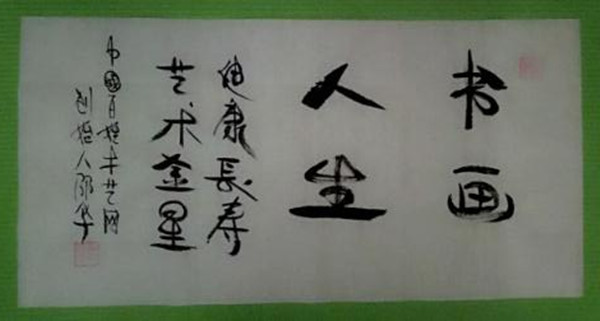 书画
人生
健康長寿
艺术金星
中國百姓才艺网
创始人邵华